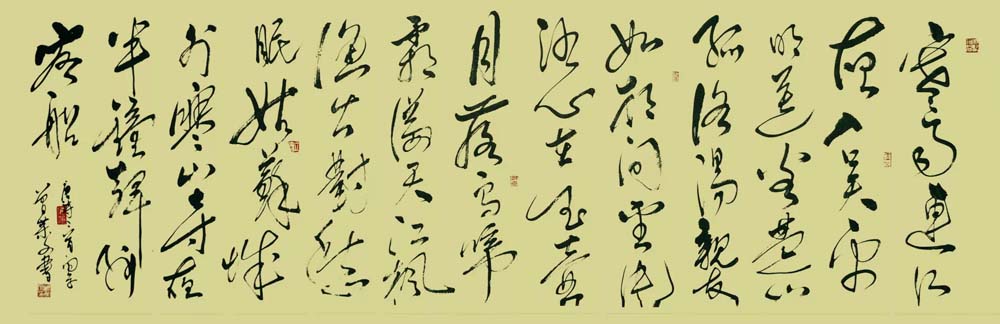 寒雨連江
夜入吴平
明送客楚山
孤洛陽親友
如相问一片
冰心在玉壶
月落烏啼
霜滿天江楓
渔火對愁
眠姑蘇城
外寒山寺夜
半鐘聲到
客船